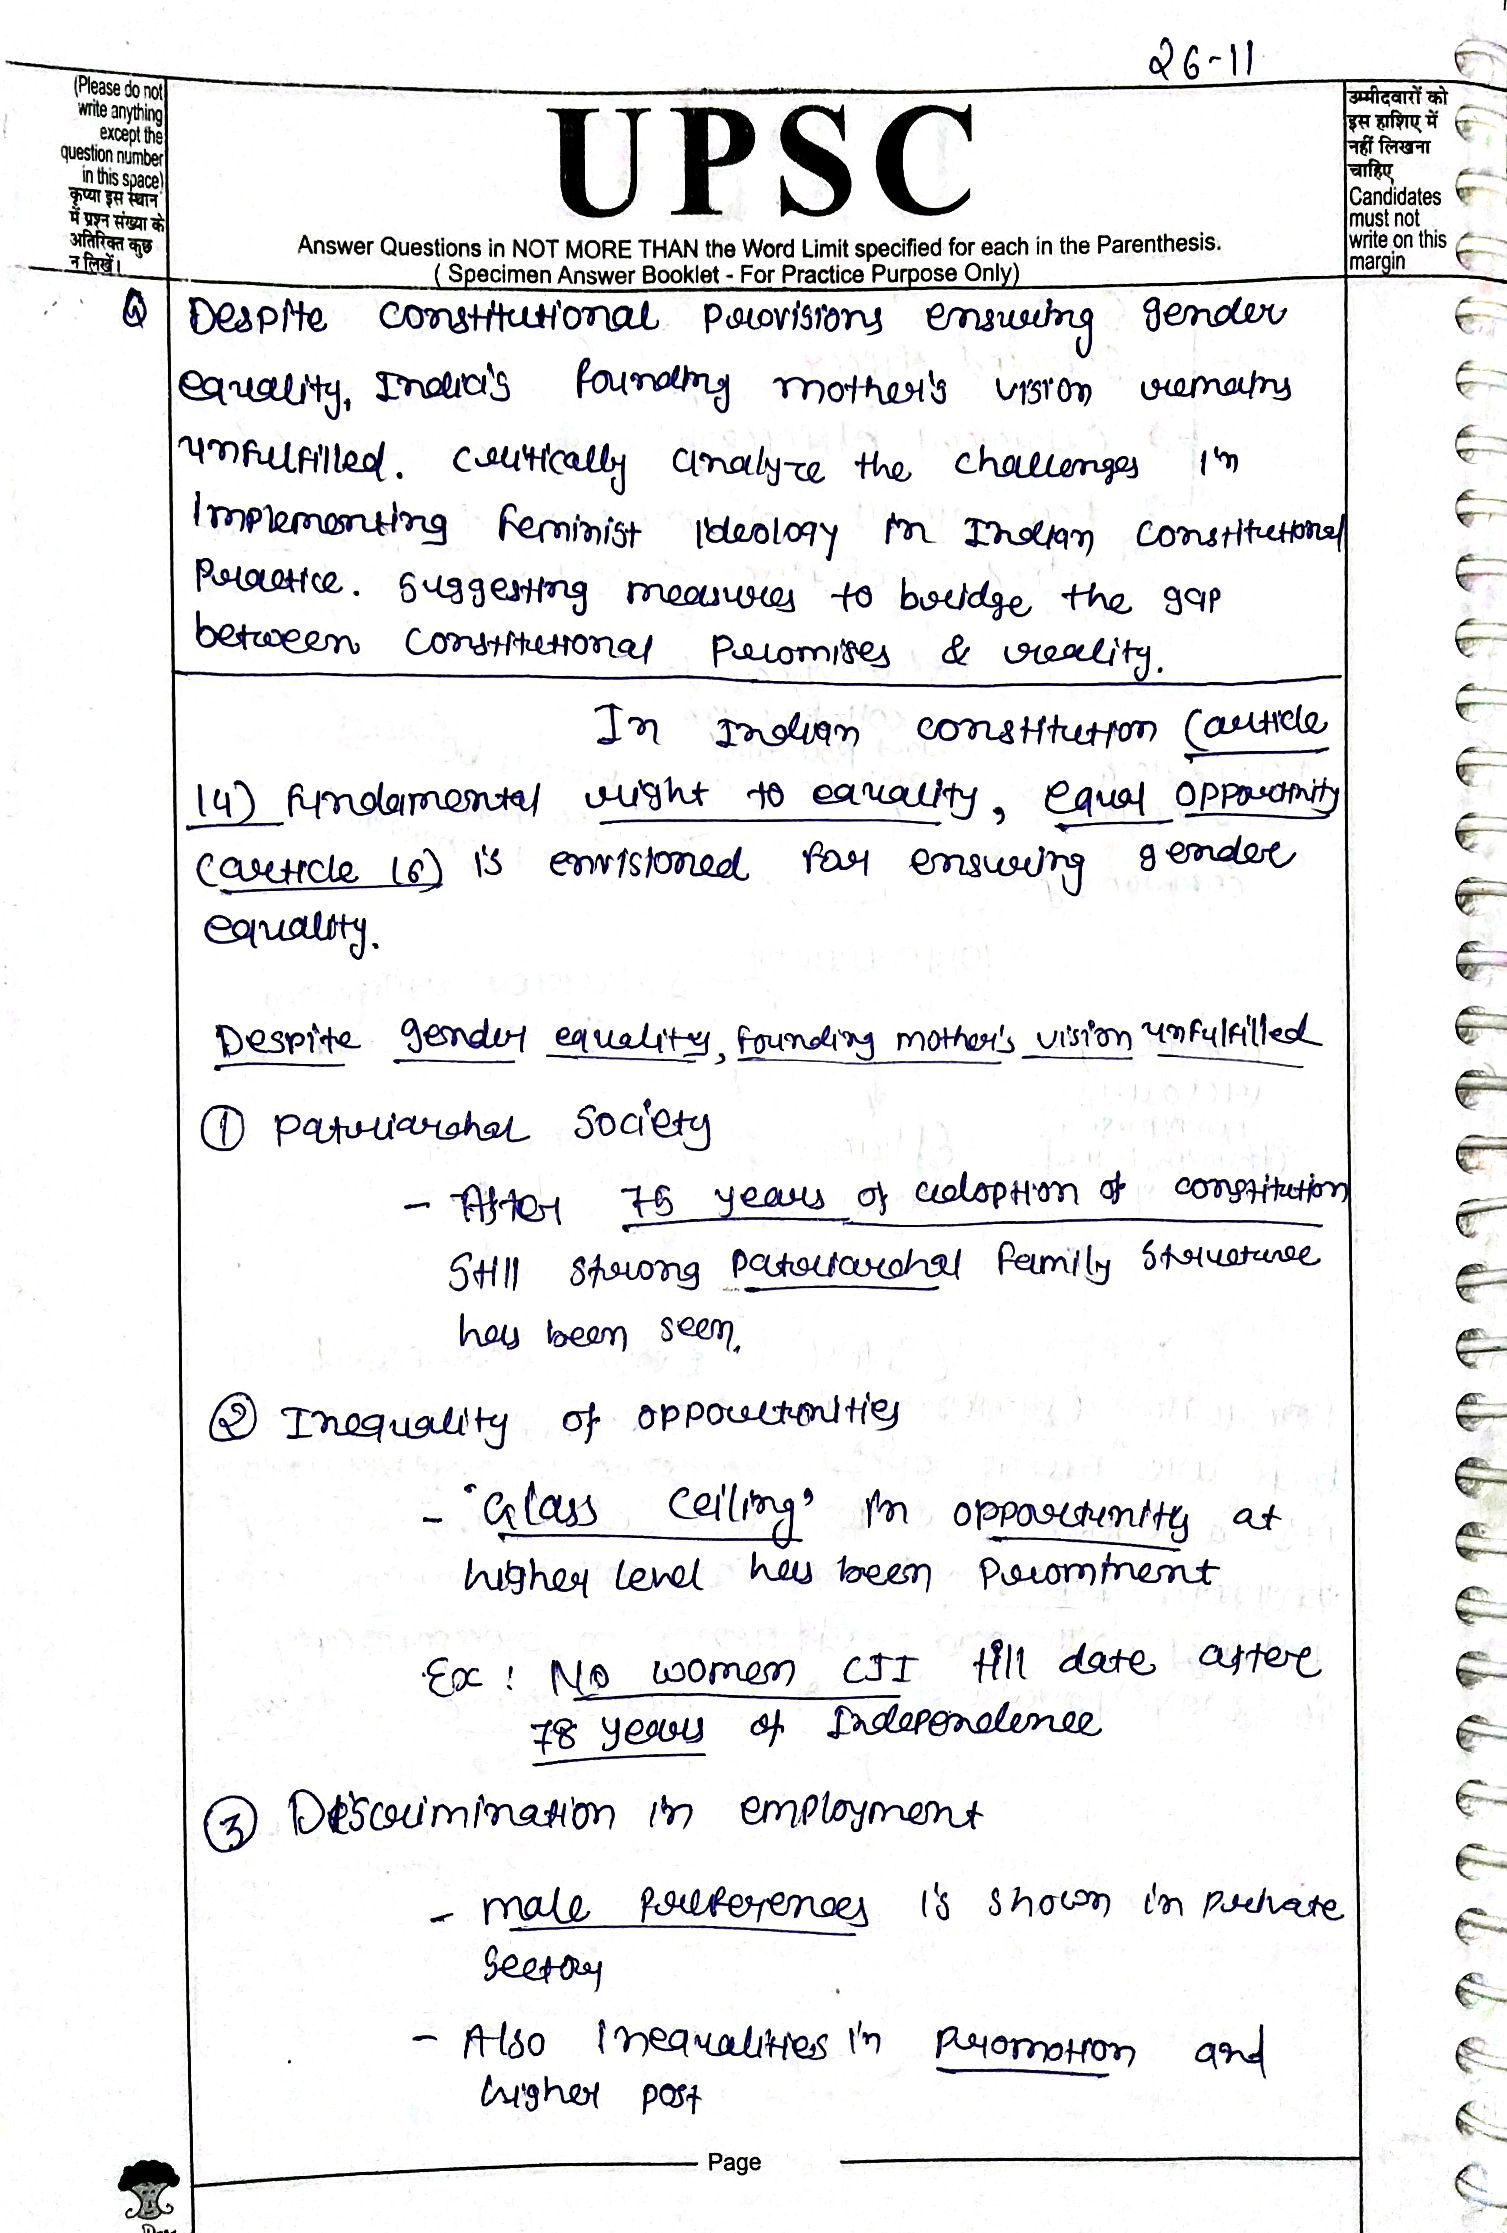 26-11
(Please do not
write anything
except the
question number
in this space)
कृप्या इस स्थान
में प्रश्न संख्या के
अतिरिक्त कुछ
न लिखें।
UPSC
Answer Questions in NOT MORE THAN the Word Limit specified for each in the Parenthesis.
( Specimen Answer Booklet - For Practice Purpose Only)
उम्मीदवारों को
इस हाशिए में
नहीं लिखना
चाहिए
Candidates
must not
write on this
margin
Q Despite constitutional provisions ensuring gender
equality, India's founding mother's vision remains
unfulfilled. critically analyze the challenges in
implementing feminist ideology in Indian constitutional
Practice. suggesting measures to bridge the gap
between constitutional Promises & reality.
In Indian constitution (article
14) fundamental right to equality, equal opportunity
(article 16) is envisioned for ensuring gender
equality.
Despite gender equality, founding mother's vision unfulfilled
① Patriarchal Society
- After 75 years of adoption of constitution
Still strong patriarchal family structure
has been seen.
② Inequality of opportunities
- 'Glass ceiling' in opportunity at
higher level has been Prominent
Ex: No women CJI till date after
78 years of Independence
③ Discrimination in employment
- male preferences is shown in private
sector
- Also inequalities in promotion and
higher post
Page